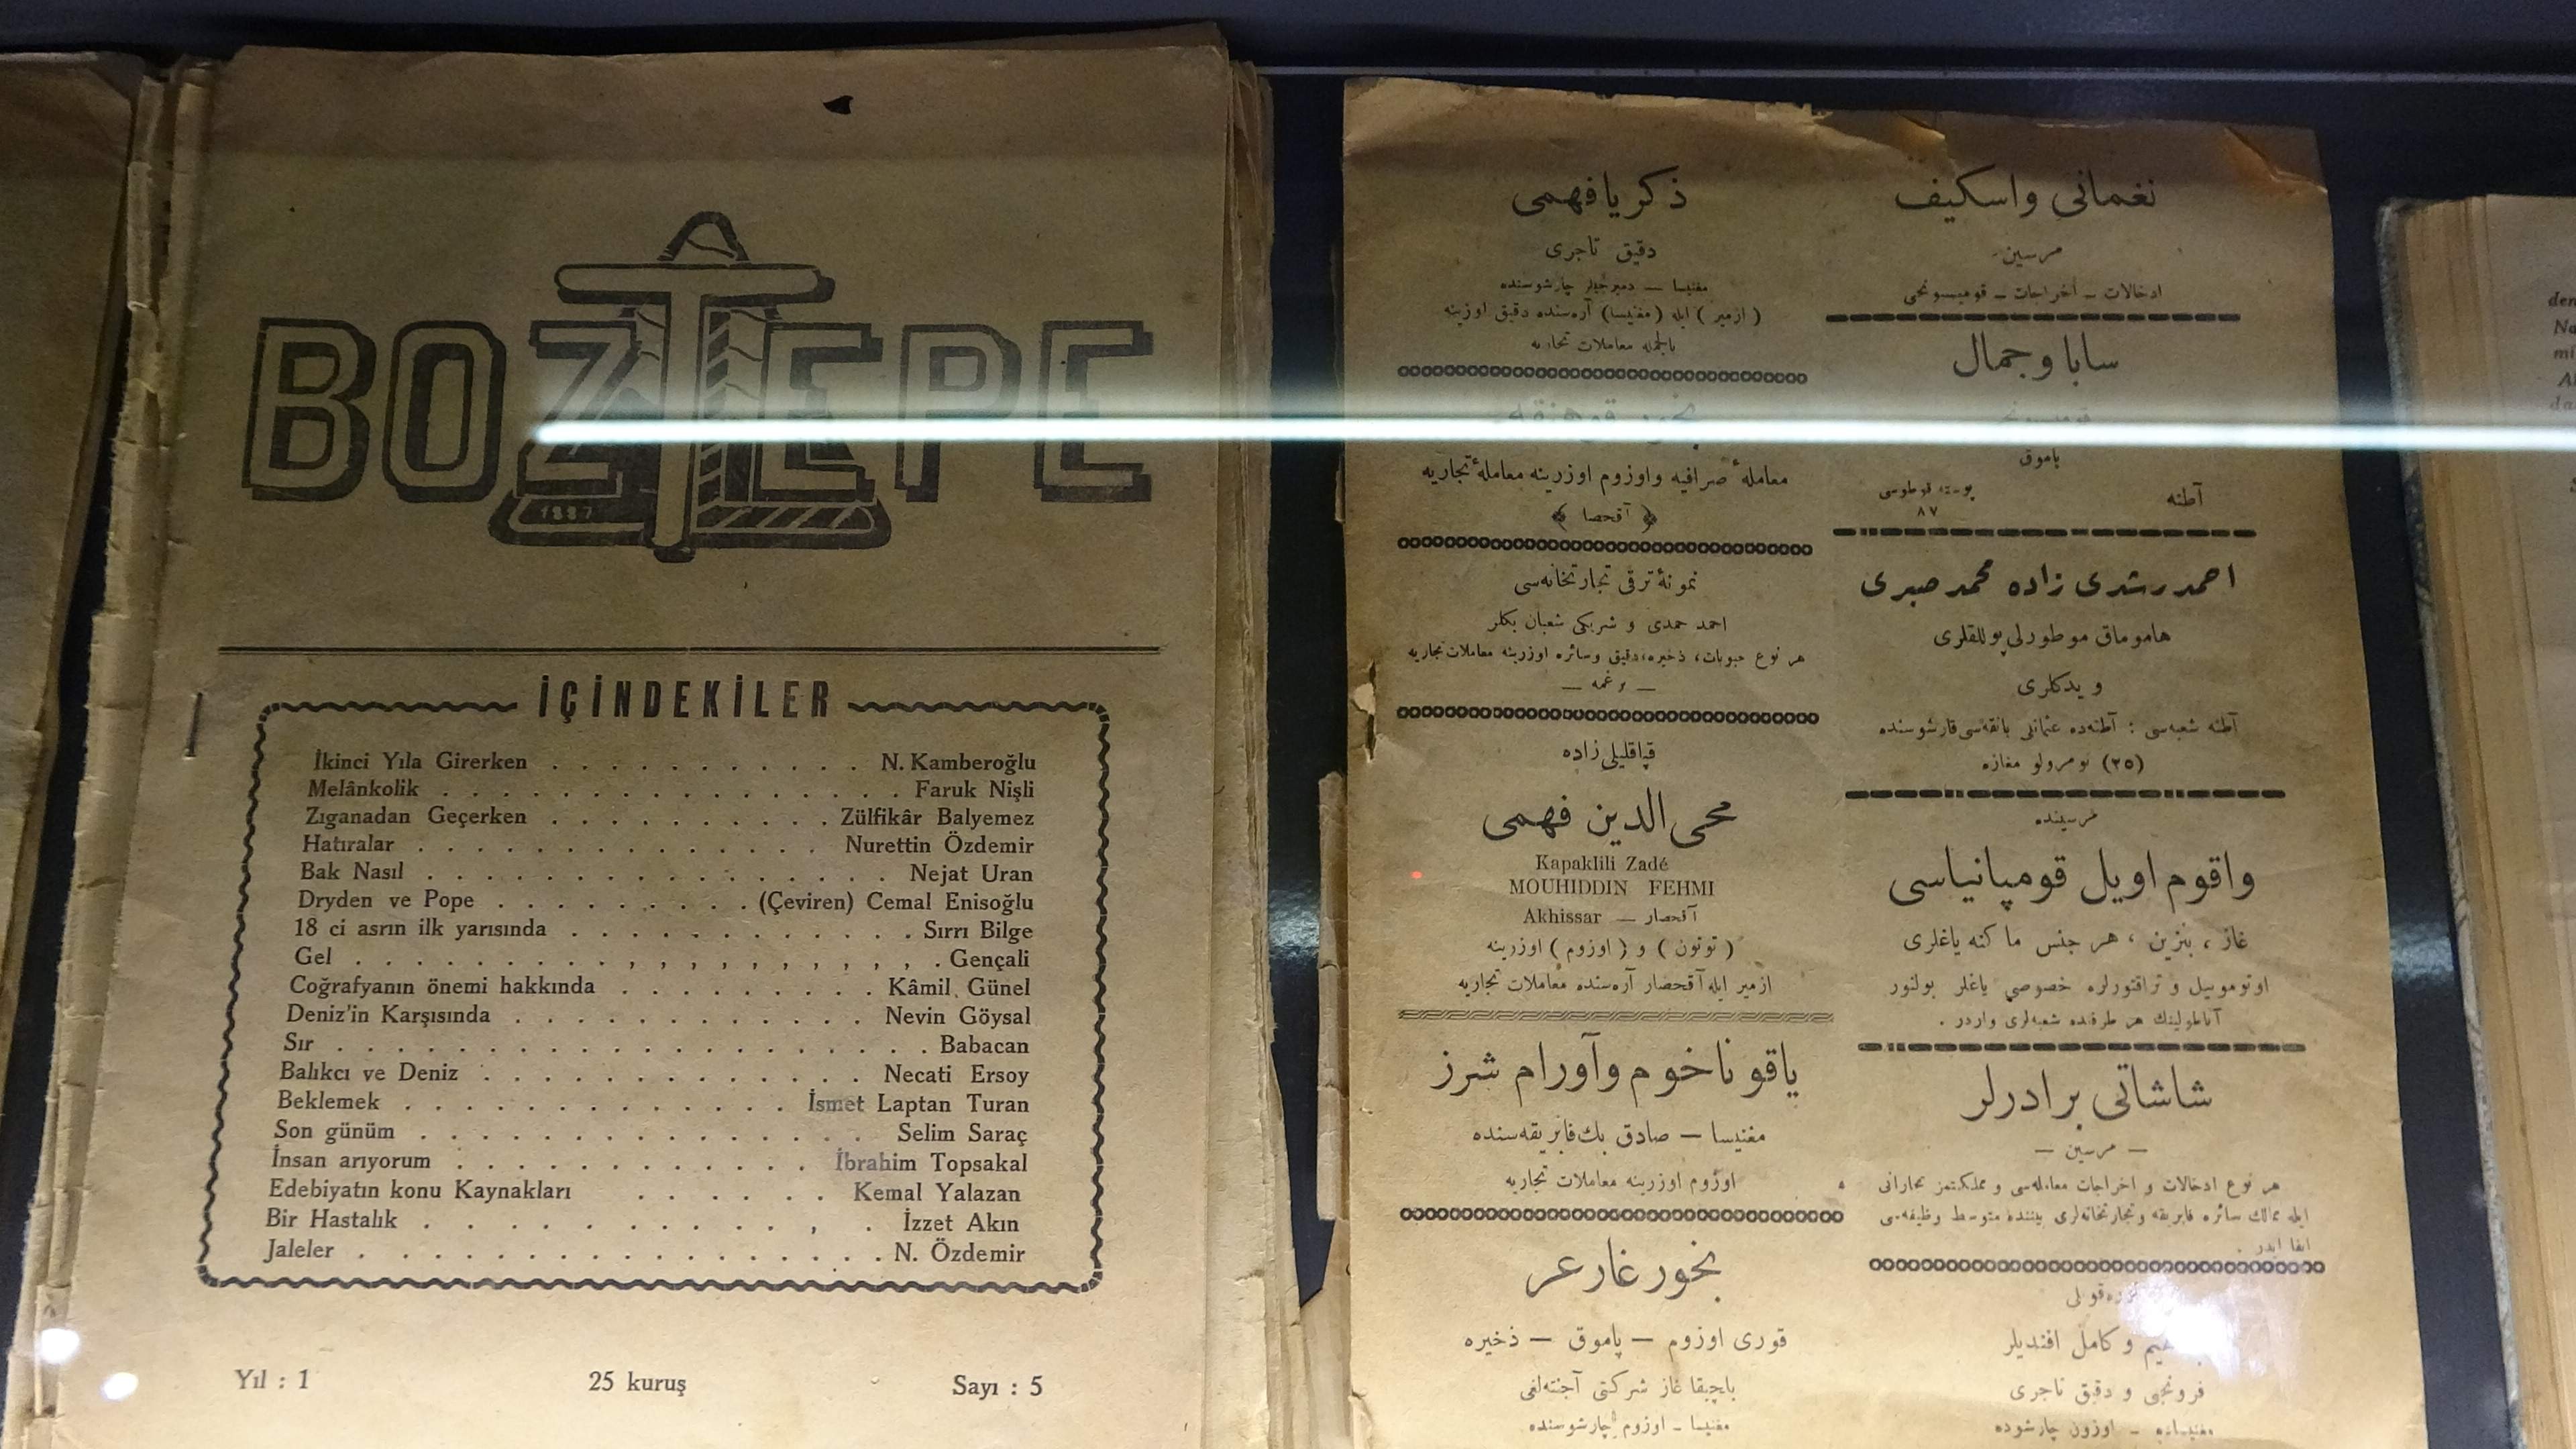 BOZTEPE
1887
İÇİNDEKİLER
İkinci Yıla Girerken . . . . . . . . . . . N. Kamberoğlu
Melânkolik . . . . . . . . . . . . . . . . Faruk Nişli
Zıganadan Geçerken . . . . . . . . . . Zülfikâr Balyemez
Hatıralar . . . . . . . . . . . . . . Nurettin Özdemir
Bak Nasıl . . . . . . . . . . . . . . . . Nejat Uran
Dryden ve Pope . . . . . . . . . (Çeviren) Cemal Enisoğlu
18 ci asrın ilk yarısında . . . . . . . . . . . . Sırrı Bilge
Gel . . . . . . . . . , , , , , , , , , , . Gençali
Coğrafyanın önemi hakkında . . . . . . . . . Kâmil Günel
Deniz'in Karşısında . . . . . . . . . . . . Nevin Göysal
Sır . . . . . . . . . . . . . . . . . . . . Babacan
Balıkcı ve Deniz . . . . . . . . . . . . . Necati Ersoy
Beklemek . . . . . . . . . . . . . İsmet Laptan Turan
Son günüm . . . . . . . . . . . . . . . Selim Saraç
İnsan arıyorum . . . . . . . . . . . . İbrahim Topsakal
Edebiyatın konu Kaynakları . . . . . . Kemal Yalazan
Bir Hastalık . . . . . . . . . . . , . İzzet Akın
Jaleler . . . . . . . . . . . . . . . . . . N. Özdemir
Yıl : 1 25 kuruş Sayı : 5
نغمانی واسکیف
مرسین
ادخالات ـ اخراجات ـ قومیسونجی
سابا وجمال
پاموق
آطنه پوسته قوطوسی
٨٧
احمد رشدی زاده محمد صبری
هاموماق موطورلی پوللقلری
و یدکلری
آطنه شعبه‌سی : آطنه‌ده عثمانلی بانقه‌سی قارشوسنده
(٢٥) نومرولو مغازه
مرسینده
واقوم اویل قومپانیاسی
غاز ، بنزین ، هر جنس ماکنه یاغلری
اوتوموبیل و تراقتورلره خصوصی یاغلر بولنور
آناطولینك هر طرفنده شعبه‌لری واردر .
شاشاتی برادرلر
— مرسین —
هر نوع ادخالات و اخراجات معامله‌سی و مملکتمز تجارانی
ایله ممالك سائره فابریقه و تجارتخانه‌لری بیننده متوسط وظیفه‌سی
ایفا ایدر .
و کامل افندیلر
فرونجی و دقیق تاجری
اوزون چارشوده
ذکریا فهمی
دقیق تاجری
مغنیسا — دمیرجیلر چارشوسنده
( ازمیر ) ایله (مغنیسا) آره‌سنده دقیق اوزینه
بالجمله معاملات تجاریه
معاملهٔ صرافیه واوزوم اوزرینه معاملهٔ تجاریه
﴿ آقحصا ﴾
نمونهٔ ترقی تجارتخانه‌سی
احمد حمدی و شریکی شعبان بکلر
هر نوع حبوبات، ذخیره، دقیق وسائره اوزرینه معاملات تجاریه
قپاقلیلی زاده
محی الدین فهمی
Kapaklili Zadé
MOUHIDDIN FEHMI
Akhissar — آقحصار
( توتون ) و ( اوزوم ) اوزرینه
ازمیر ایله آقحصار آره‌سنده معاملات تجاریه
یاقو ناخوم وآورام شرز
مغنیسا — صادق بك فابریقه‌سنده
اوزوم اوزرینه معاملات تجاریه
بخور غارعر
قوری اوزوم — پاموق — ذخیره
غاز شرکتی آجنته‌لغی
مغنیسا ـ اوزوم چارشوسنده